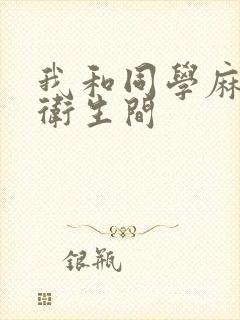 我和同學麻
衛生間
銀瓶